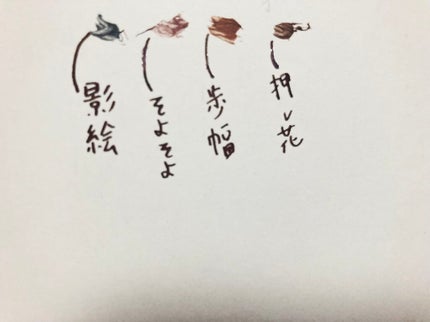 押し花
歩幅
そよそよ
影絵